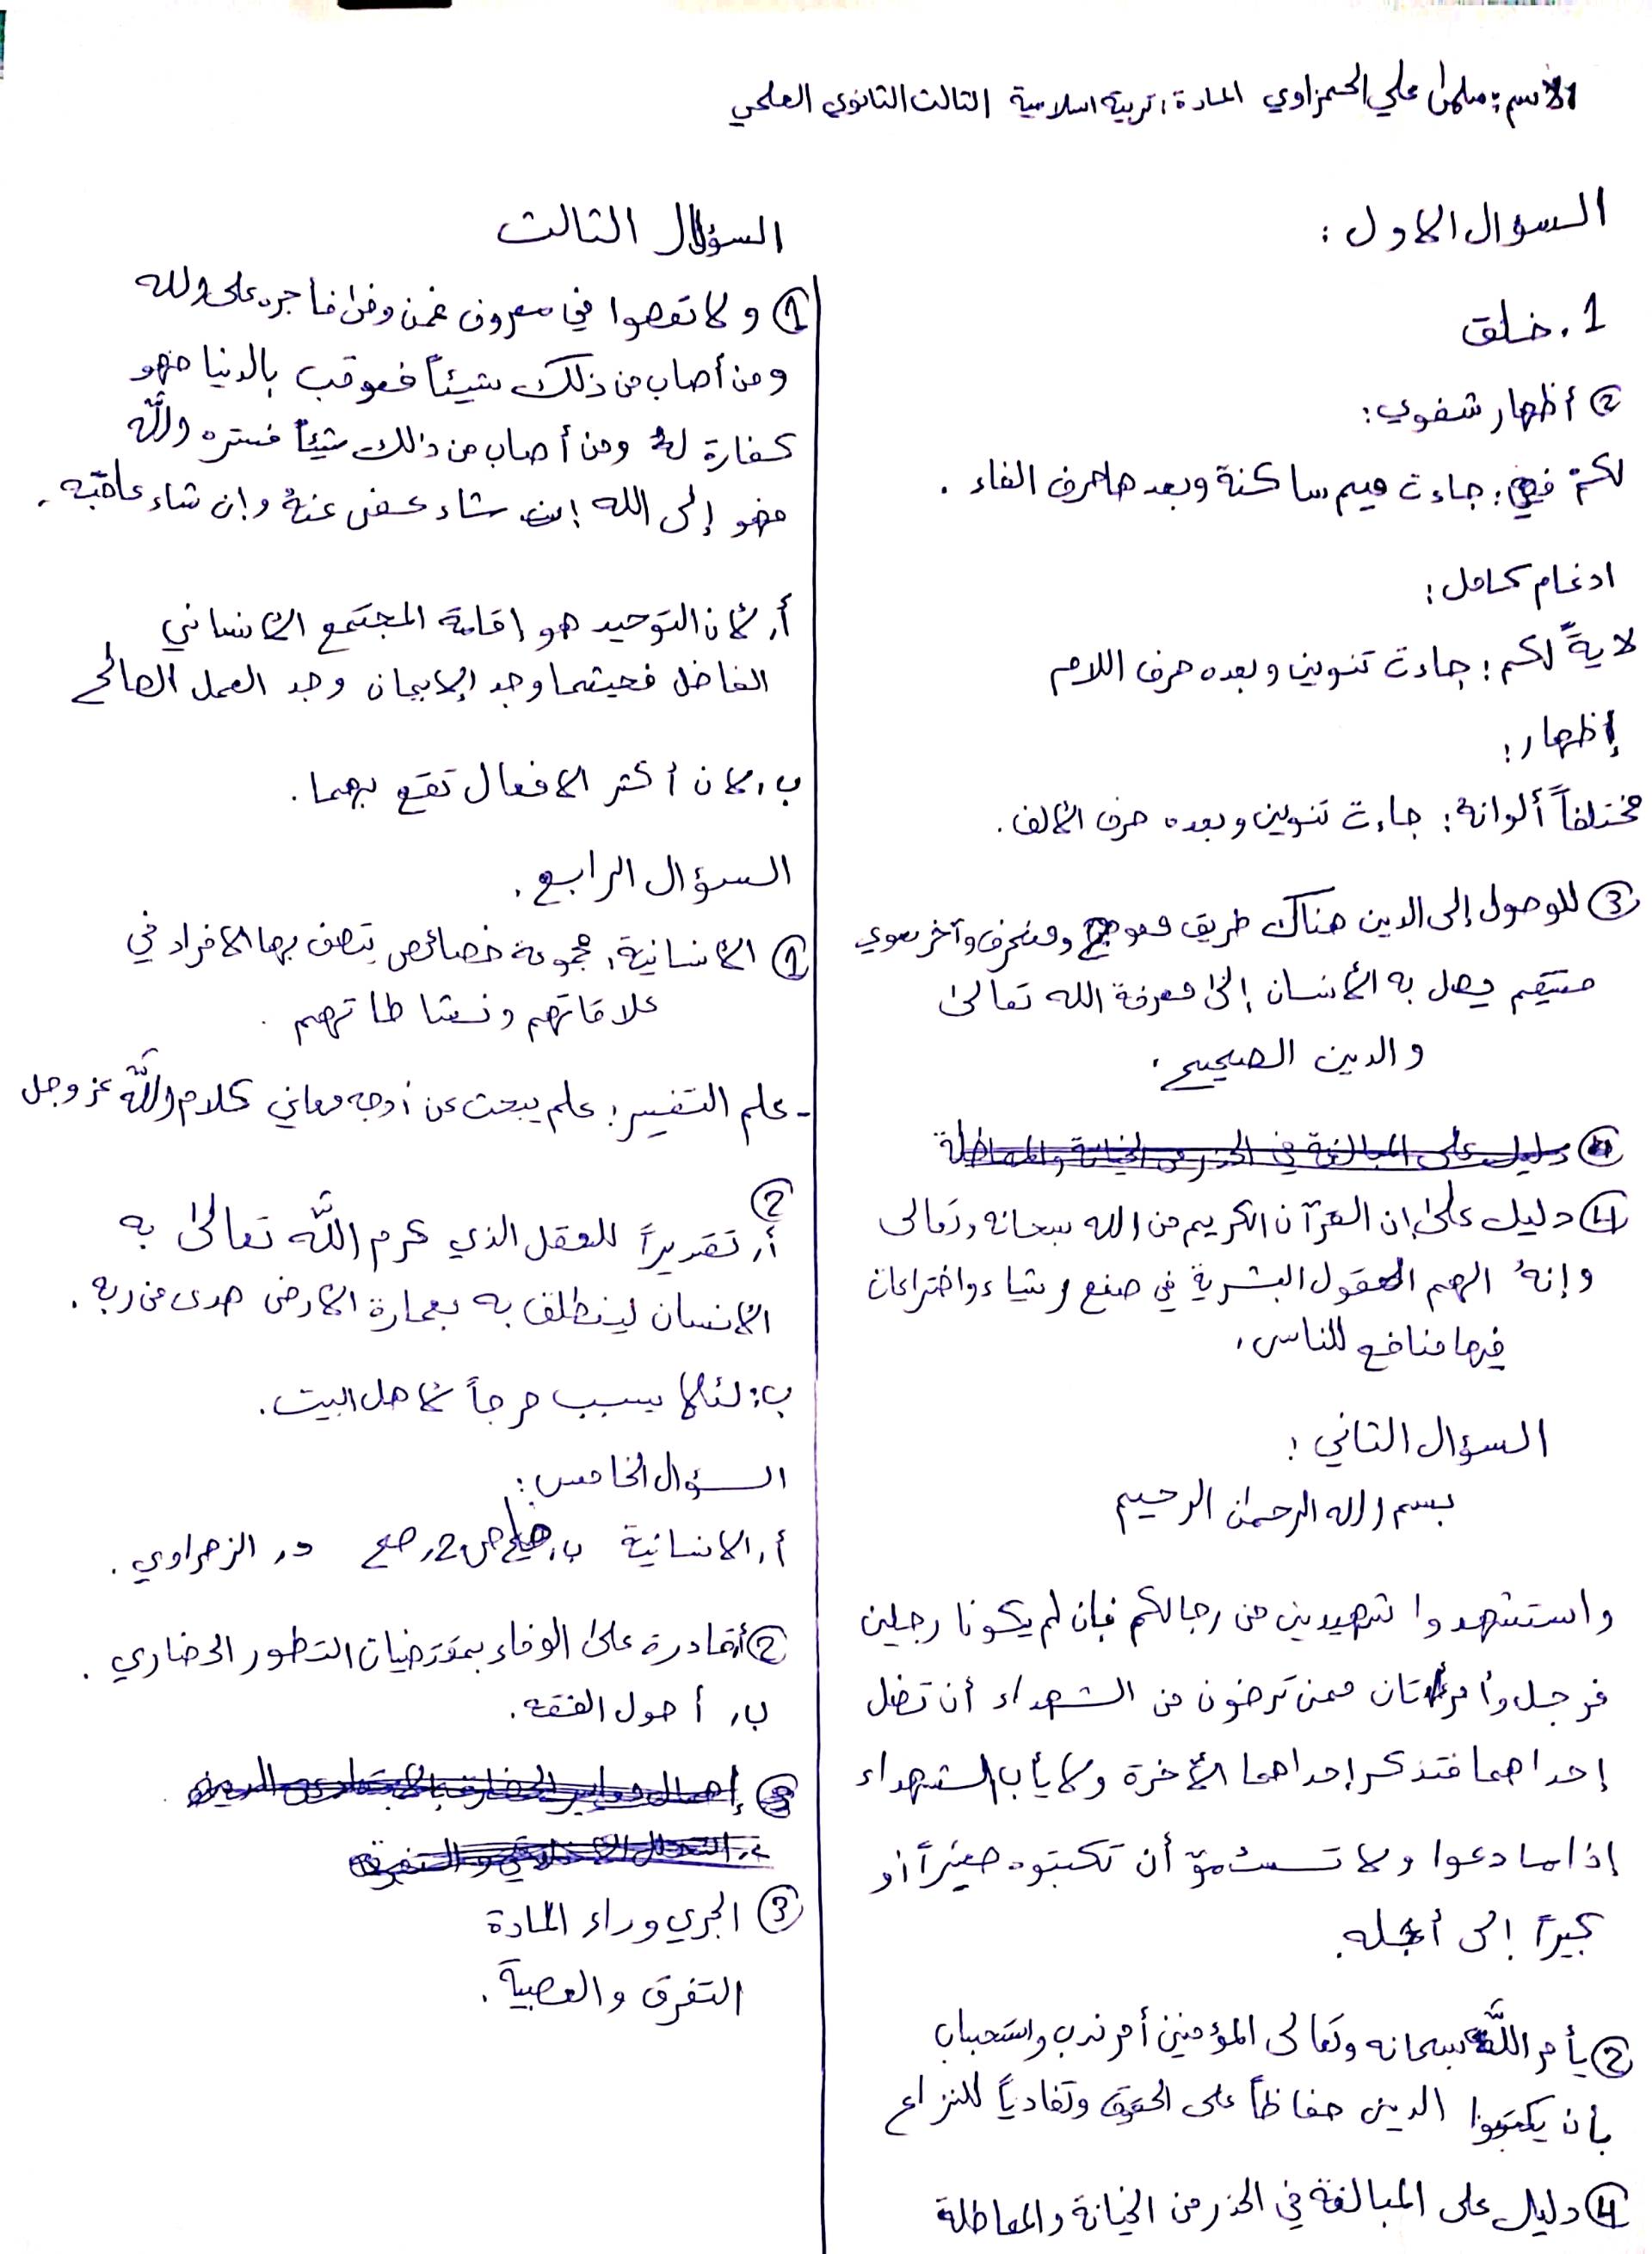 الاسم: سلمى علي الحمزاوي المادة: تربية اسلامية الثالث الثانوي العلمي
السؤال الاول:
1. خلق
② أظهار شفوي:
لكم في: جاءت ميم ساكنة وبعدها حرف الفاء.
ادغام كامل:
لايةً لكم: جاءت تنوين وبعده حرف اللام
إظهار:
مختلفاً ألوانهُ: جاءت تنوين وبعده حرف الألف.
③ للوصول إلى الدين هناك طريق معوج ومنحرف وآخر سوي
مستقيم يصل به الأنسان إلى معرفة الله تعالى
والدين الصحيح.
④ دليل على المبالغة في الحذر من الخيانة والمماطلة
④ دليل على ان القرآن الكريم من الله سبحانه وتعالى
وإنهُ الهم العقول البشرية في صنع اشياء واختراعات
فيها منافع للناس.
السؤال الثاني:
بسم الله الرحمن الرحيم
واستشهدوا شهيدين من رجالكم فإن لم يكونا رجلين
فرجل وأمرأتان ممن ترضون من الشهداء أن تضل
إحداهما فتذكر إحداهما الأخرة ولا يأب الشهداء
إذا ما دعوا ولا أن تكتبوه صغيراً أو
كبيراً إلى أجله.
② يأمر اللّه سبحانه وتعالى المؤمنين أمر ندب واستحباب
بأن يكتبوا الدين حفاظاً على الحقوق وتفادياً للنزاع
④ دليل على المبالغة في الحذر من الخيانة والمماطلة
السؤال الثالث
① ولا تعصوا في معروف فمن وفى فأجره على الله
ومن أصاب من ذلك شيئاً فعوقب بالدنيا فهو
كفارة له ومن أصاب من ذلك شيئاً فستره اللّه
فهو إلى الله إن شاء عفى عنهُ وإن شاء عاقبه.
أ. لأن التوحيد هو إقامة المجتمع الأنساني
الفاضل فحيثما وجد الإيمان وجد العمل الصالح
ب. لان أكثر الافعال تقع بهما.
السؤال الرابع.
① الأنسانية: مجموعة خصائص يتصف بها الافراد في
علاقاتهم ونشاطاتهم.
- علم التفسير: علم يبحث عن أوجه معاني كلام اللّه عز وجل
②
أ. تقديراً للعقل الذي كرم اللّه تعالى به
الأنسان لينطلق به بعمارة الارض هدى من ربه.
ب: لئلا يسبب حرجاً لأهل البيت.
السؤال الخامس:
أ. الانسانية ب. 2. صح د. الزهراوي.
② أ. قادرة على الوفاء بمقتضيات التطور الحضاري.
ب. أصول الفقه.
③ الجري وراء المادة
التفرق والعصبية.